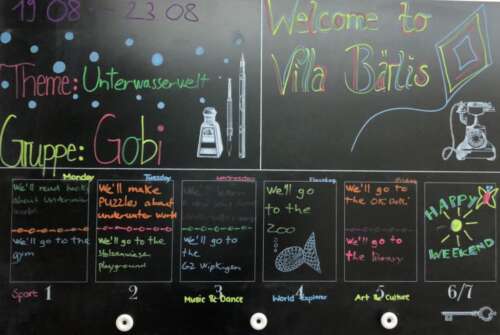 19 08 — 23 08
Theme: Unterwasserwelt
Gruppe: Gobi
Welcome to
Villa Bärlis
Monday
We'll read books
about underwater
world
We'll go to the
gym
Sport 1
Tuesday
We'll make
PUZZLES about
underwater world
We'll go to the
playground
2
Wednesday
We'll go to
the
GZ Wipkingen
3
Music & Dance
Thursday
We'll go
to the
ZOO
4
World Explorer
Friday
We'll go to
the
We'll go to
the library
5
Art & Culture
HAPPY
WEEKEND
6/7